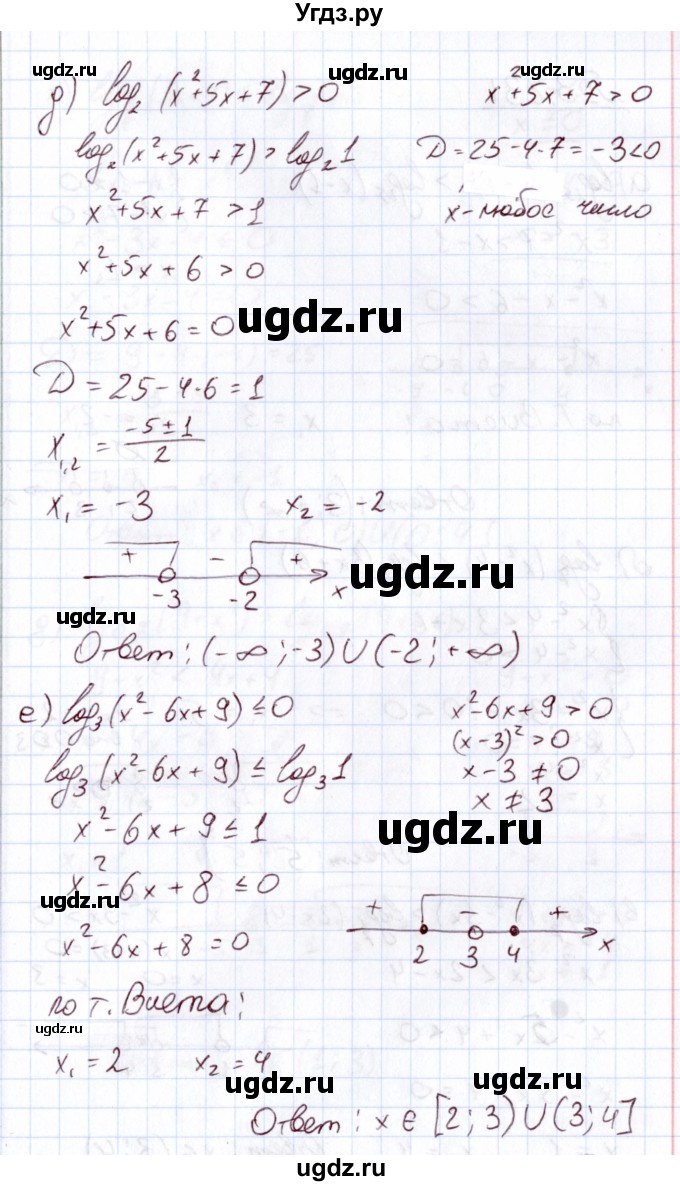 Угдз.ру
ugdz.ru ugdz.ru ugdz.ru
д) log₂ (x²+5x+7) > 0    x²+5x+7 > 0
log₂(x²+5x+7) > log₂1    D = 25-4·7 = -3<0
x²+5x+7 > 1    x-любое число
x²+5x+6 > 0
x²+5x+6 = 0    ugdz.ru
D = 25-4·6 = 1
x₁,₂ = (-5±1)/2
x₁ = -3    x₂ = -2
+ - +    ugdz.ru
-3 -2 x
ugdz.ru
Ответ: (-∞;-3)∪(-2;+∞)
е) log₃(x²-6x+9) ≤ 0    x²-6x+9 > 0
(x-3)² > 0
log₃(x²-6x+9) ≤ log₃1    x-3 ≠ 0
x²-6x+9 ≤ 1    x ≠ 3
ugdz.ru
x²-6x+8 ≤ 0
ugdz.ru    + - +
x²-6x+8 = 0    2 3 4 x
по т. Виета:
ugdz.ru
x₁ = 2    x₂ = 4
ugdz.ru ugdz.ru
Ответ: x ∈ [2;3)∪(3;4]
ugdz.ru